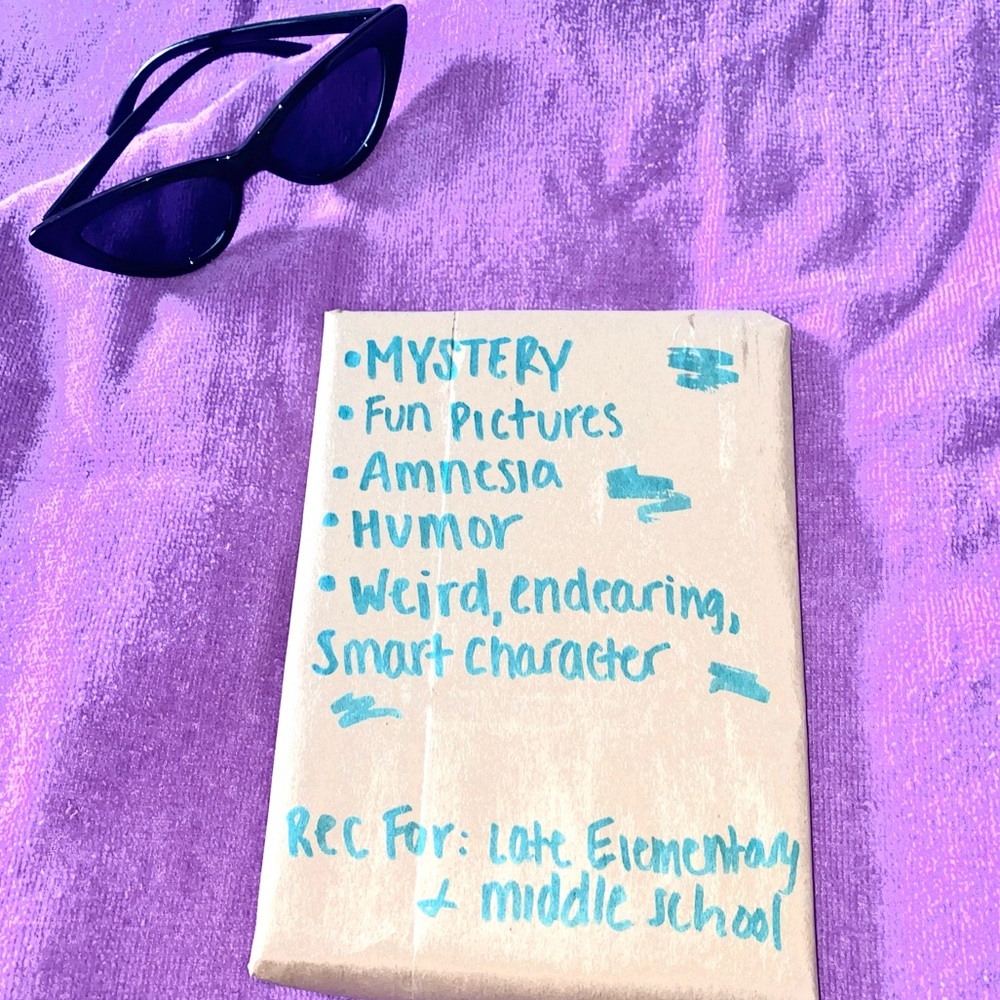 • MYSTERY
• Fun Pictures
• Amnesia
• Humor
• Weird, endearing,
Smart Character
Rec For: Late Elementary
& middle school